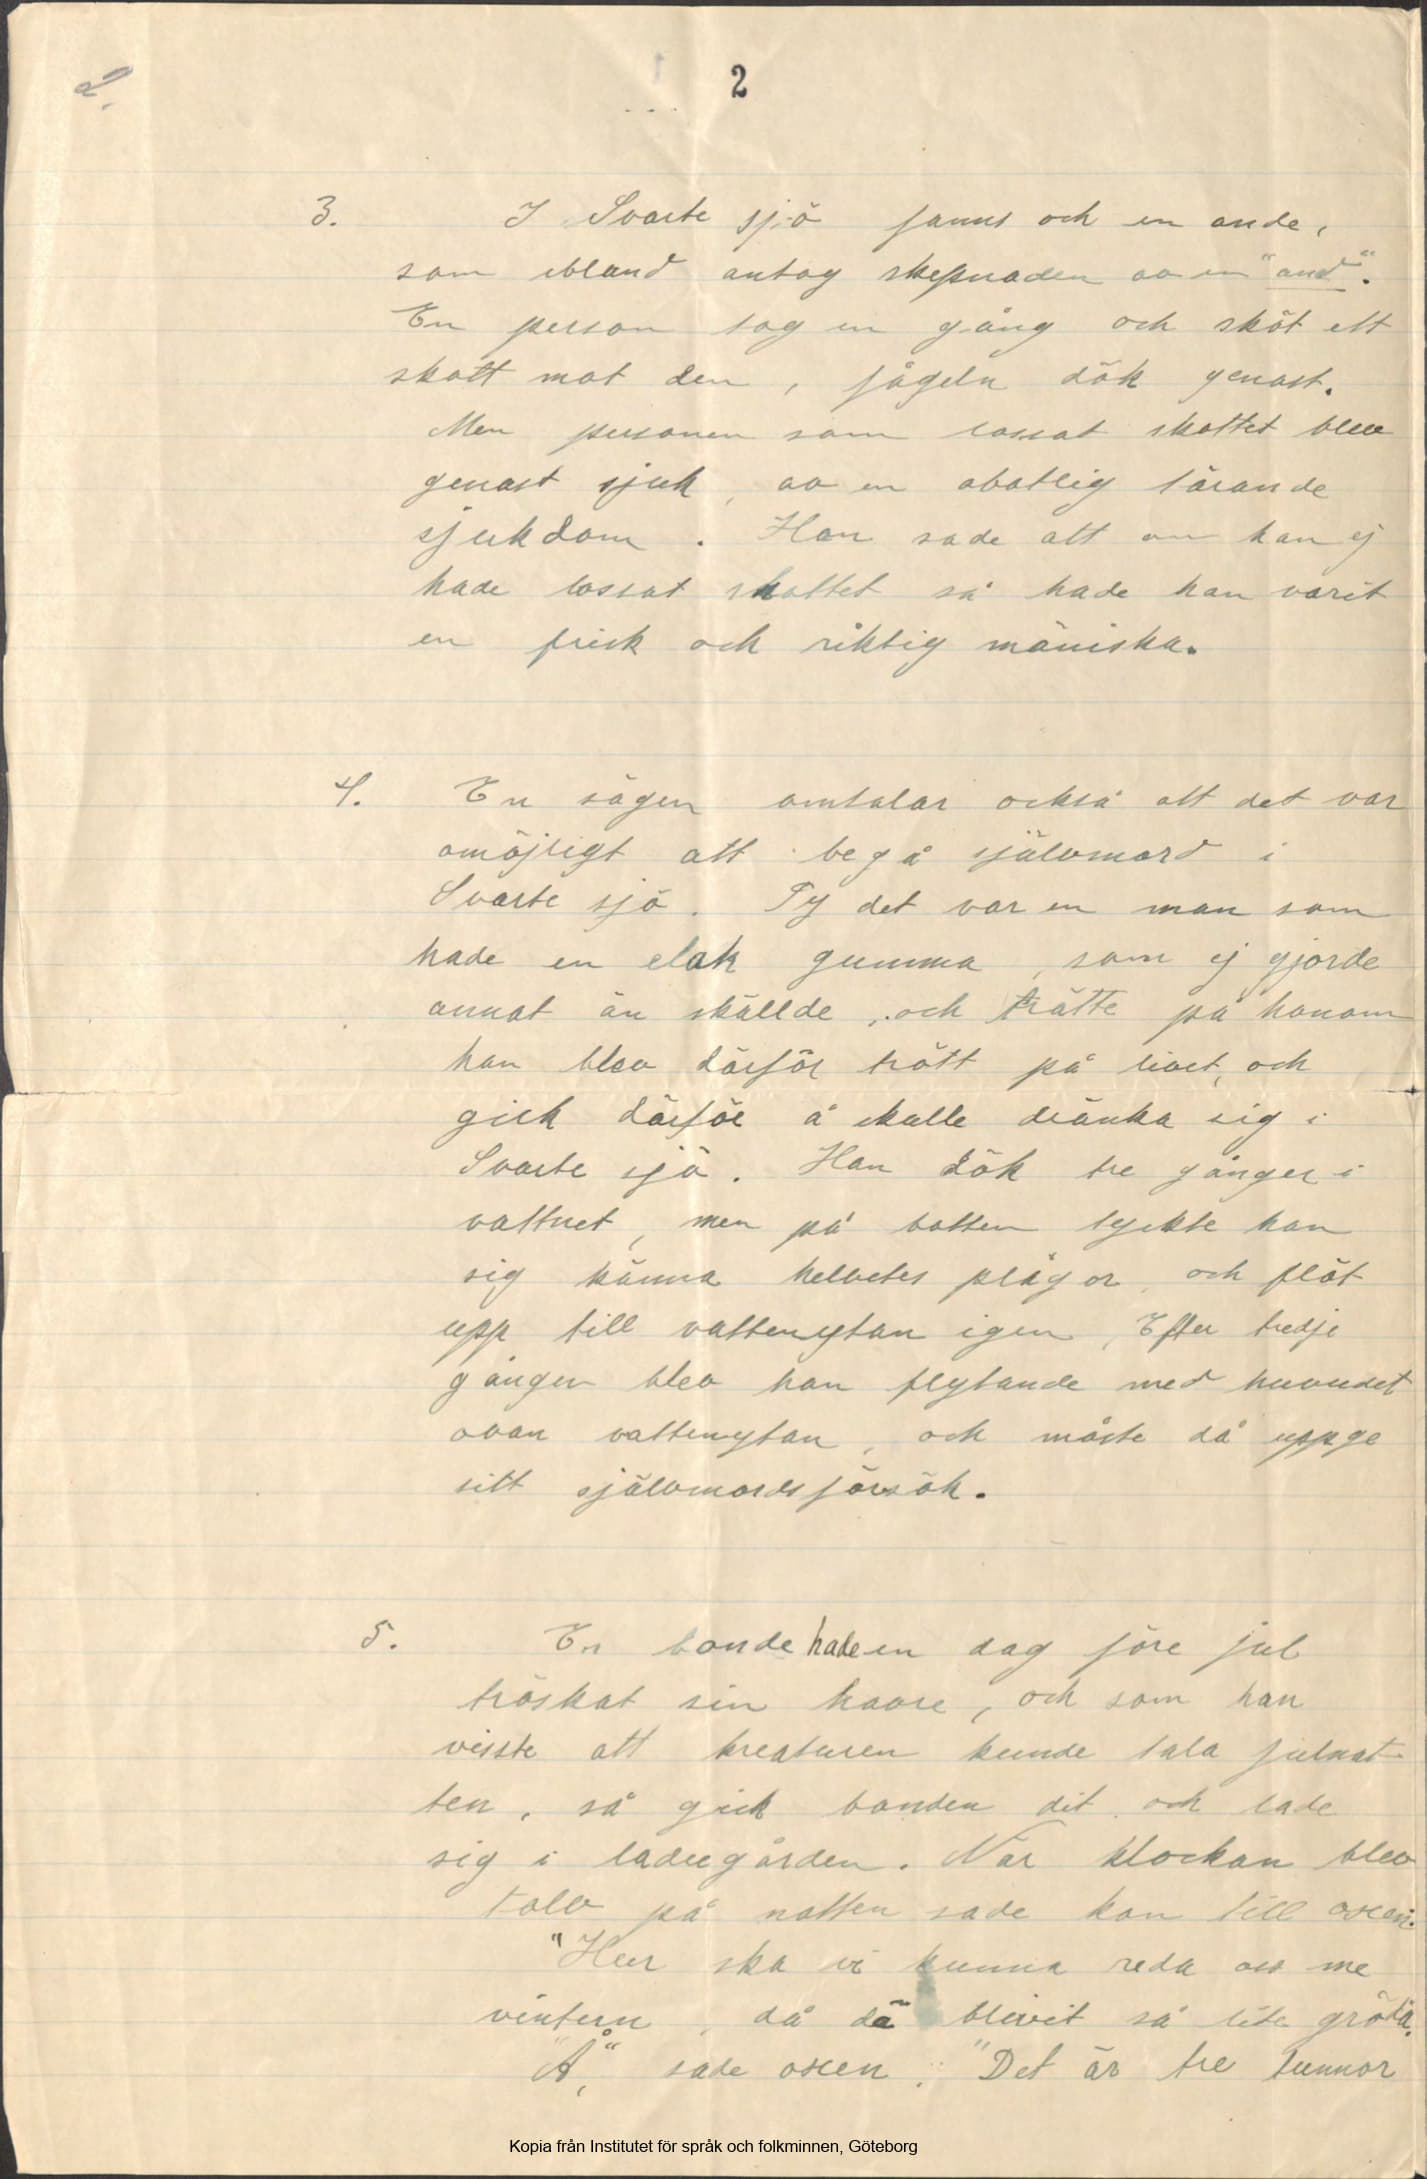 2.
2
3. I Svarte sjö fanns och en ande,
som ibland antog skepnaden av en "and".
En person tog en gång och sköt ett
skott mot den, fågeln dök genast.
Men personen som lossat skottet blev
genast sjuk, av en obotlig tärande
sjukdom. Han sade att om han ej
hade lossat skottet så hade han varit
en frisk och riktig mäniska.
4. En sägen omtalar också att det var
omöjligt att begå självmord i
Svarte sjö. Ty det var en man som
hade en elak gumma, som ej gjorde
annat än skällde, och trätte på honom
han blev därför trött på livet, och
gick därför å skulle dränka sig i
Svarte sjö. Han dök tre gånger i
vattnet, men på botten tyckte han
sig känna helvetes plågor, och flöt
upp till vattenytan igen, Efter tredje
gången blev han flytande med huvudet
ovan vattenytan, och måste då uppge
sitt självmordsförsök.
5. En bonde hade en dag före jul
tröskat sin havre, och som han
visste att kreaturen kunde tala julnat-
ten, så gick bonden dit och lade
sig i ladugården. När klockan blev
tolv på natten sade kon till oxen:
"Hur ska vi kunna reda oss me
vintern, då dä blivit så lite gröda.
"Å," sade oxen: "Det är tre tunnor
Kopia från Institutet för språk och folkminnen, Göteborg